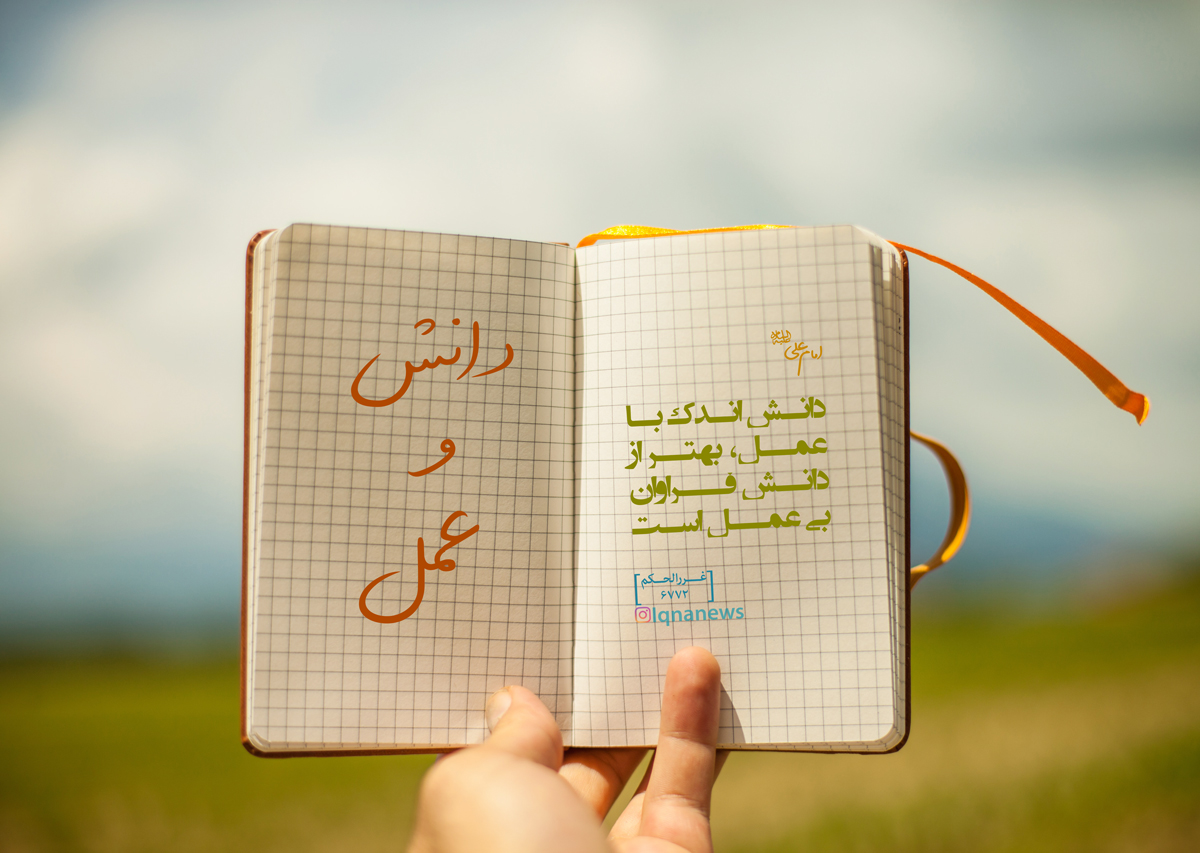 دانش
و
عمل
امام علی علیه‌السلام
دانش اندک با
عمل، بهتر از
دانش فراوان
بی عمل است
[غررالحکم
۶۷۷۲]
Iqnanews